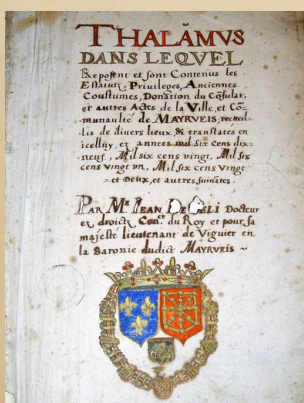 THALAMVS
DANS LEQVEL
Reposent et sont Contenus les
Estatutz, Privileges, Anciennes
Coustumes, Donation du Cõsulat,
et autres Actes de la Ville, et Cõ-
munaulté de MAYRVEIS, recueil-
lis de divers lieux, & translatés en
icelluy, ez années mil six cens dix-
neuf, Mil six cens vingt, Mil six
cens vingt vn, Mil six cens vingt
et Deux, et autres suivãtes.
PAR Mᵉ. IEAN Docteur
ez droictz, Conᵉʳ. du Roy et pour sa
majesté lieutenant de Viguier en
la Baronie dudict MAYRVEIS ~